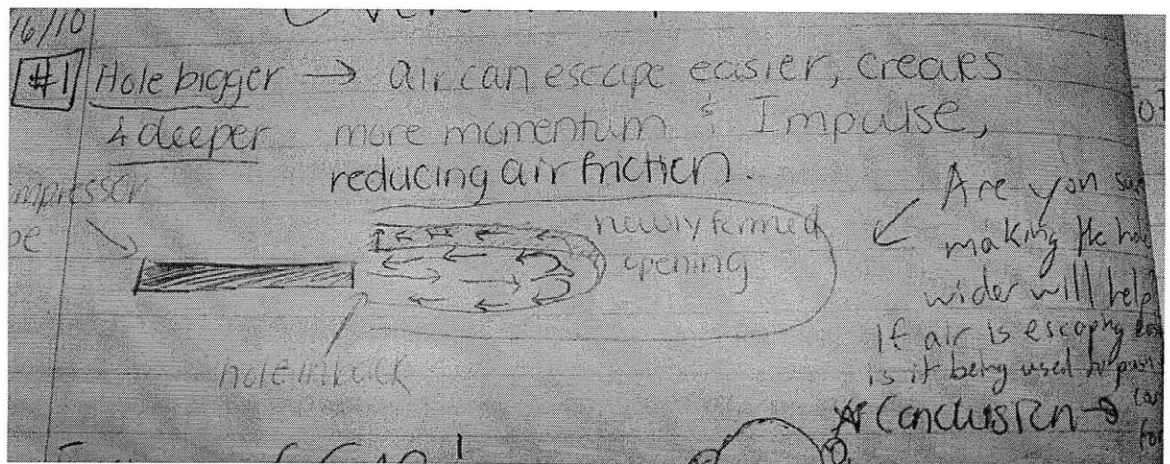 16/10
#1 Hole bigger → air can escape easier, creates
& deeper more momentum & Impulse,
reducing air friction.
newly formed
opening
hole in back
Are you
making the
wider will help
If air is escaping
is it being used to
* Conclusion →